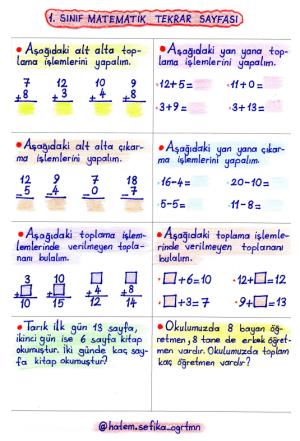 1. SINIF MATEMATİK TEKRAR SAYFASI
• Aşağıdaki alt alta top-
lama işlemlerini yapalım.
7 12 10 9
+8 +3 +4 +8
• Aşağıdaki yan yana top-
lama işlemlerini yapalım.
• 12+5= • 11+0=
• 3+9= • 3+13=
• Aşağıdaki alt alta çıkar-
ma işlemlerini yapalım.
12 9 7 18
-5 -4 -0 -7
• Aşağıdaki yan yana çıkar-
ma işlemlerini yapalım.
• 16-4= 20-10=
• 5-5= 11-8=
• Aşağıdaki toplama işlem-
lemlerinde verilmeyen topla-
nanı bulalım.
3 10
+ + +4 +8
10 15 12 14
• Aşağıdaki toplama işlemle-
rinde verilmeyen toplananı
bulalım.
• +6=10 12+ =12
• +3=7 • 9+ =13
• Tarık ilk gün 13 sayfa,
ikinci gün ise 6 sayfa kitap
okumuştur. İki günde kaç say-
fa kitap okumuştur?
• Okulumuzda 8 bayan öğ-
retmen, 8 tane de erkek öğret-
men vardır. Okulumuzda toplam
kaç öğretmen vardır?
@halem.sefika_ogrtmn